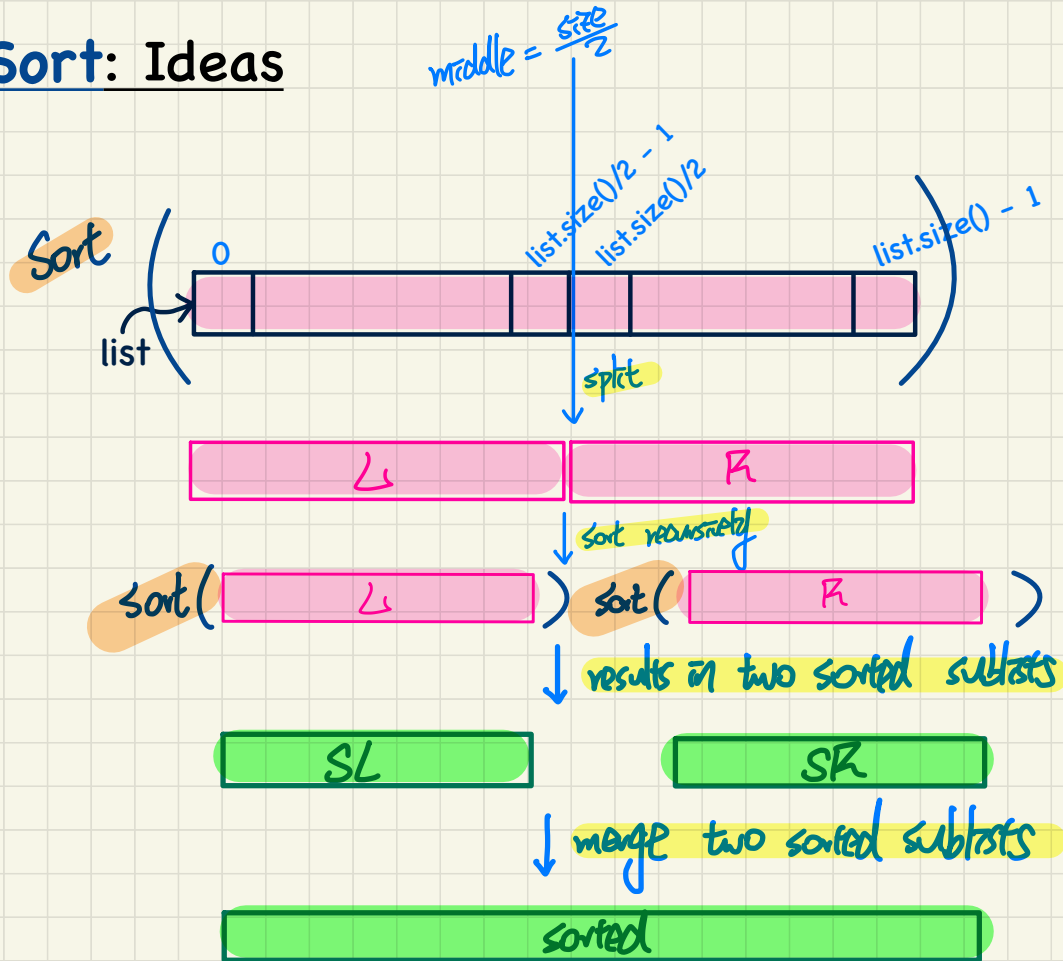 Sort: Ideas
middle = size/2
list.size()/2 - 1
list.size()/2
list.size() - 1
Sort
0
list
split
L R
sort recursively
sort( L ) sort( R )
results in two sorted sublists
SL SR
merge two sorted sublists
sorted